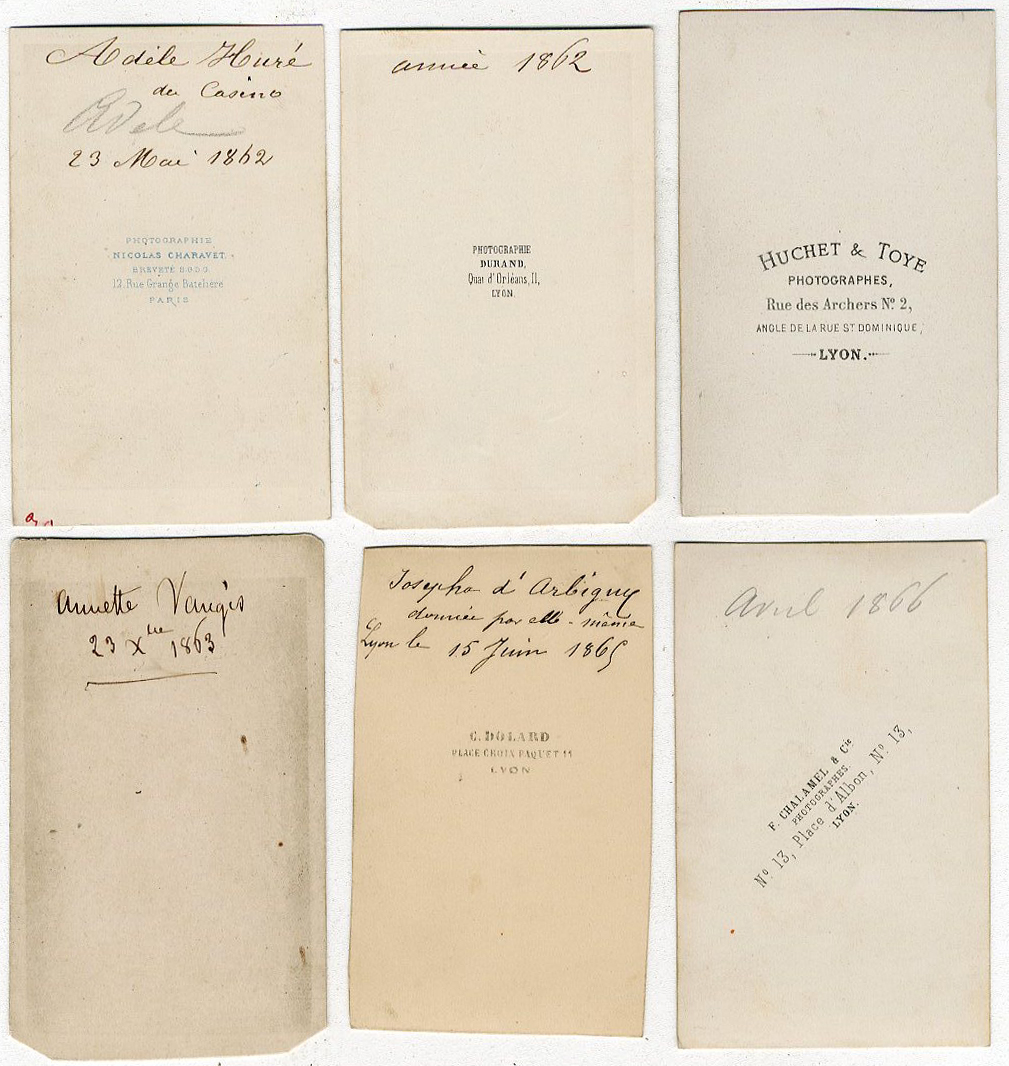 Adèle Huré
du Casino
Adele
23 Mai 1862
PHOTOGRAPHIE
NICOLAS CHARAVET.
BREVETÉ S.G.D.G.
12, Rue Grange Batelière
PARIS
année 1862
PHOTOGRAPHIE
DURAND,
Quai d'Orléans, 11,
LYON.
HUCHET & TOYE
PHOTOGRAPHES,
Rue des Archers Nº 2,
ANGLE DE LA RUE ST DOMINIQUE,
LYON.
Annette Vangis
23 Xbre 1863
Josepha d'Arbigny
donnée par elle-même
Lyon le 15 Juin 1865
C. DOLARD
PLACE CROIX PAQUET 11
LYON
Avril 1866
F. CHALAMEL & Cie
PHOTOGRAPHES.
Nº 13, Place d'Albon, Nº 13,
LYON.